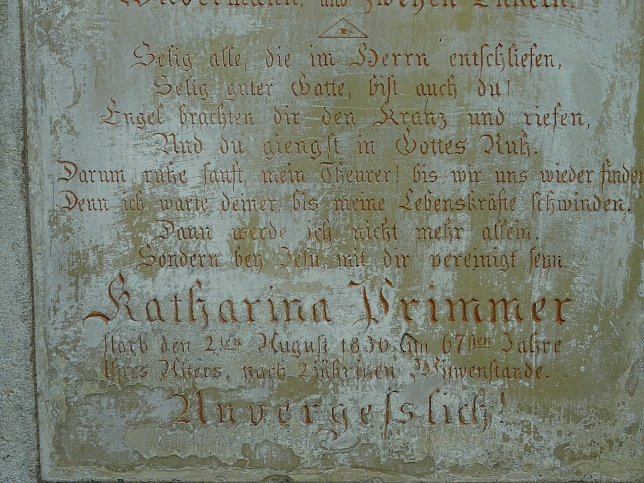 und zweyen Enkeln.
Selig alle, die im Herrn entschliefen,
Selig guter Gatte, bist auch du!
Engel brachten dir den Kranz und riefen,
Und du giengst in Gottes Ruh.
Darum ruhe sanft, mein Theurer! bis wir uns wieder finden
Denn ich warte deiner, bis meine Lebenskräfte schwinden.
Dann werde ich nicht mehr allein,
Sondern bey Jesu, mit dir vereinigt seyn.
Katharina Primmer
starb den 2ten August 1830, im 67sten Jahre
Ihres Alters, nach 2jährigen Witwenstande.
Unvergesslich!